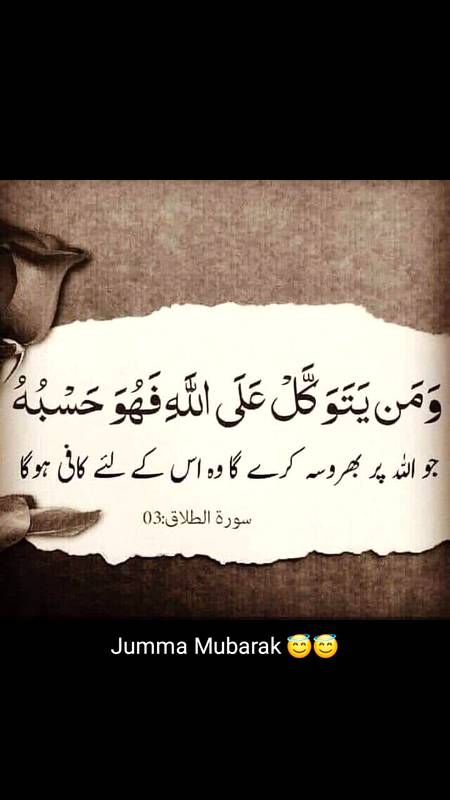 وَمَن يَتَوَكَّلْ عَلَى اللَّهِ فَهُوَ حَسْبُهُ
جو اللہ پر بھروسہ کرے گا وہ اس کے لئے کافی ہوگا
سورة الطلاق:03
Jumma Mubarak 😇😇